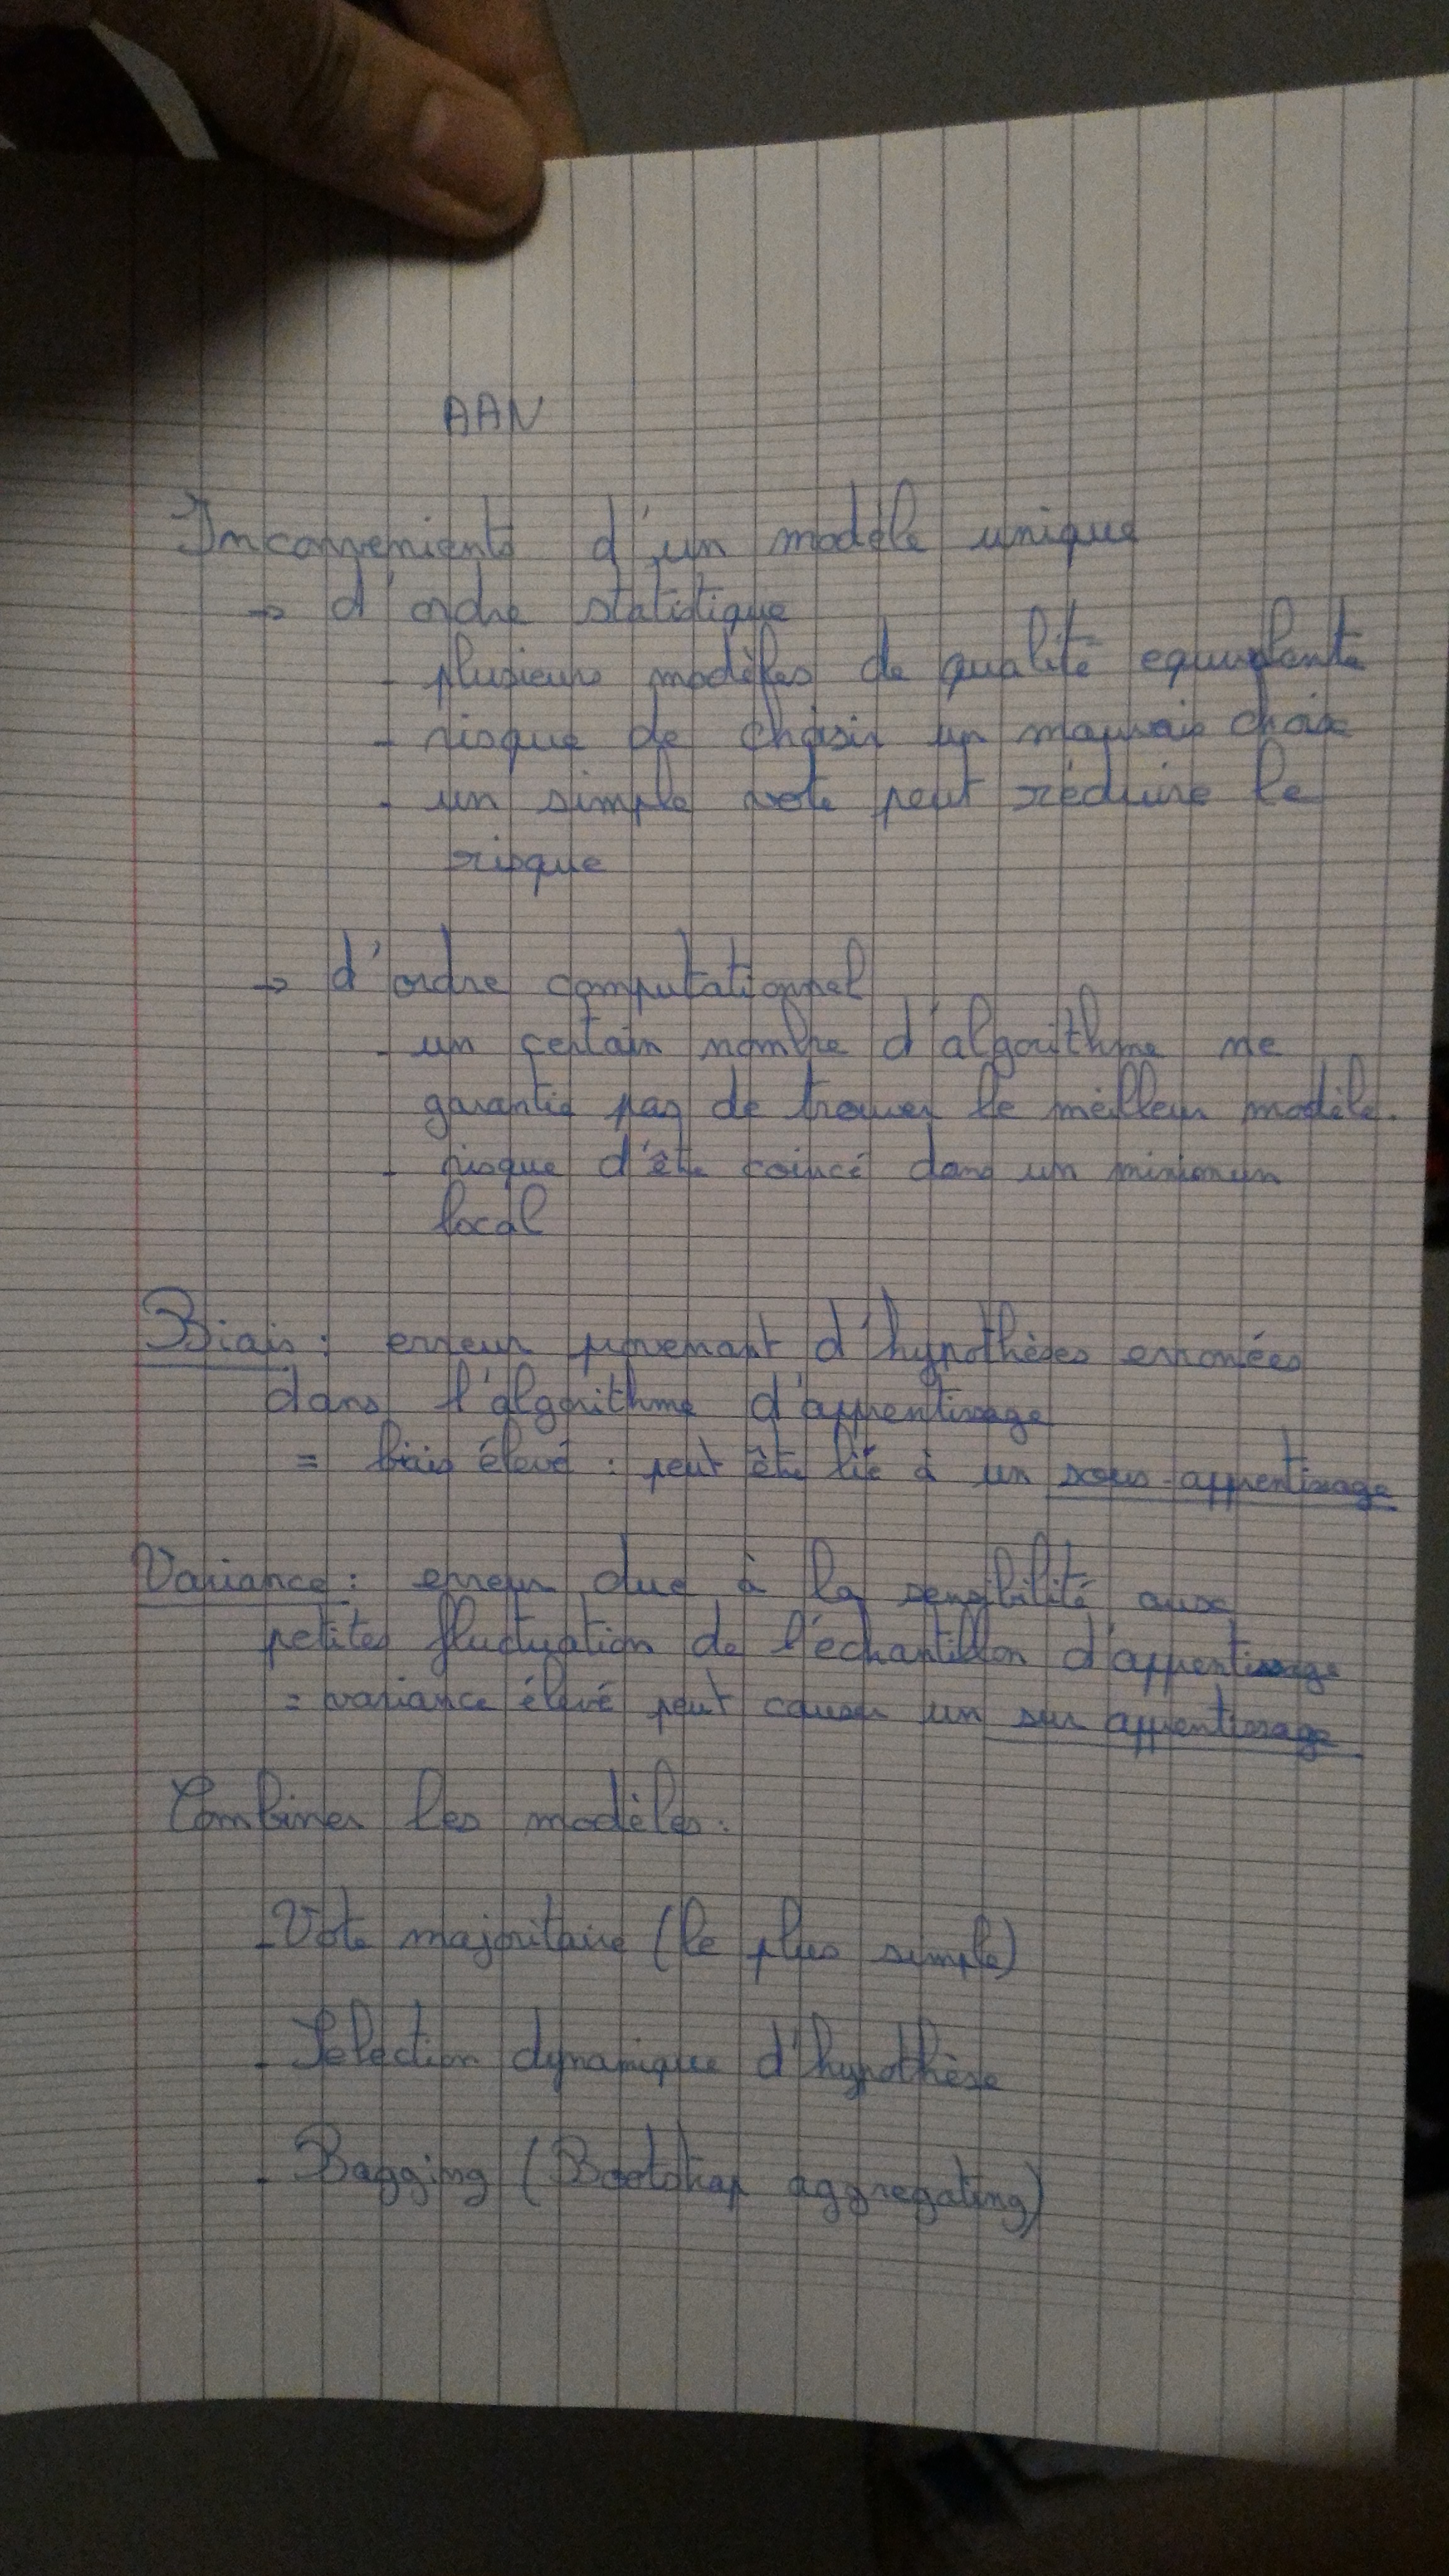 AAN
Inconvenients d'un modèle unique
→ d'ordre statistique
- plusieurs modèles de qualité equivalente
- risque de choisir un mauvais choix
- un simple vote peut réduire le
risque
→ d'ordre computationnel
- un certain nombre d'algorithme ne
garantis pas de trouver le meilleur modèle.
- risque d'être coincé dans un minimum
local
Biais : erreur provenant d'hypothèses erronées
dans l'algorithme d'apprentissage
= biais élevé : peut être lié à un sous-apprentissage
Variance : erreur due à la sensibilité aux
petites fluctuation de l'échantillon d'apprentissage
= variance élevé peut causer un sur apprentissage
Combiner les modèles :
- Vote majoritaire (le plus simple)
- Sélection dynamique d'hypothèse
- Bagging (Bootstrap aggregating)